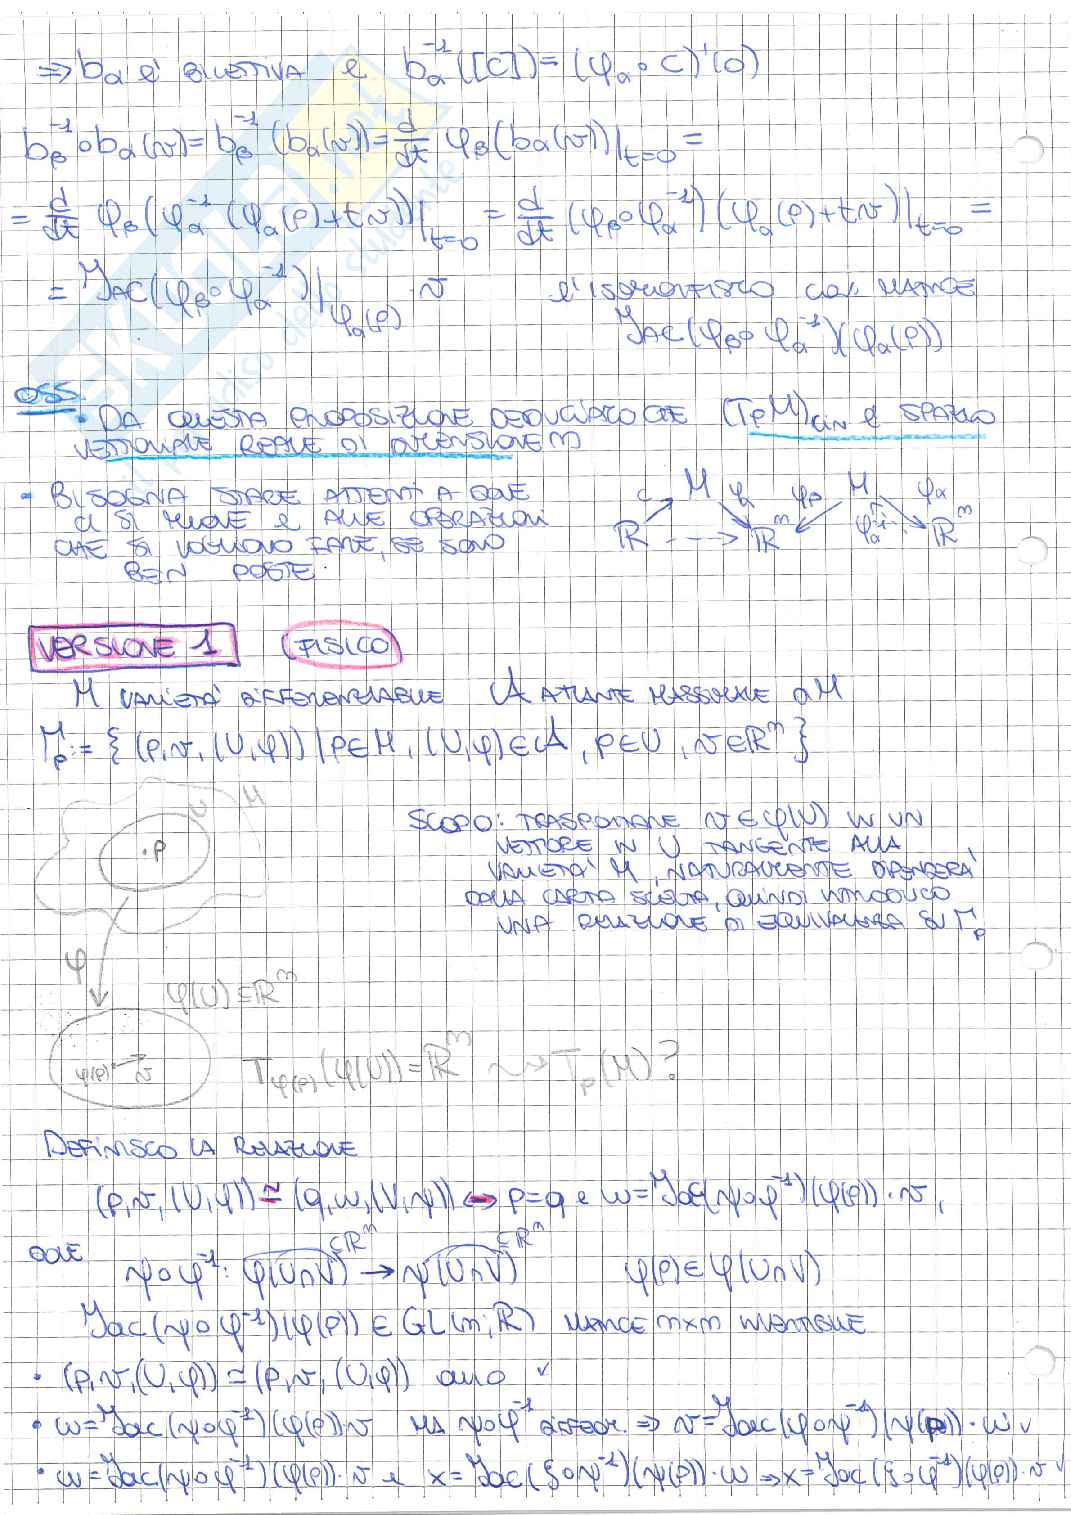 ⇒ bα e' BIETTIVA e bα⁻¹([c]) = (φα∘c)'(0)
bβ⁻¹∘bα(v) = bβ⁻¹(bα(v)) = d/dt φβ(bα(v))|t=0 =
= d/dt φβ(φα⁻¹(φα(p)+tv))|t=0 = d/dt (φβ∘φα⁻¹)(φα(p)+tv)|t=0 =
= JAC(φβ∘φα⁻¹)|φα(p) · v e' ISOMORFISMO CON MATRICE
JAC(φβ∘φα⁻¹)(φα(p))
OSS.
• DA QUESTA PROPOSIZIONE DEDUCIAMO CHE (TpM)cin e' SPAZIO
VETTORIALE REALE DI DIMENSIONE m
• BISOGNA STARE ATTENTI A DOVE
CI SI MUOVE e ALLE OPERAZIONI
CHE SI VOGLIONO FARE, SE SONO
BEN POSTE
c M φ φβ M φα
ℝ ⇢ ℝᵐ φα⁻¹ ℝᵐ
VERSIONE 1 (FISICO)
M VARIETA' DIFFERENZIABILE A ATLANTE MASSIMALE di M
Γp := { (p,v,(U,φ)) | p∈M, (U,φ)∈A, p∈U, v∈ℝᵐ }
U M
·p
SCOPO: TRASPORTARE v∈φ(U) IN UN
VETTORE IN U TANGENTE ALLA
VARIETA' M, NATURALMENTE DIPENDERA'
DALLA CARTA SCELTA, QUINDI INTRODUCO
UNA RELAZIONE DI EQUIVALENZA SU Γp
φ
φ(U)⊆ℝᵐ
φ(p) v
Tφ(p)(φ(U)) = ℝᵐ ⇝ Tp(M)?
DEFINISCO LA RELAZIONE
(p,v,(U,φ)) ≃ (q,w,(V,ψ)) ⇔ p=q e w=Jac(ψ∘φ⁻¹)(φ(p))·v,
DOVE ψ∘φ⁻¹: φ(U∩V) ⊆ℝᵐ → ψ(U∩V) ⊆ℝᵐ φ(p)∈φ(U∩V)
Jac(ψ∘φ⁻¹)(φ(p)) ∈ GL(m;ℝ) MATRICE m×m INVERTIBILE
• (p,v,(U,φ)) ≃ (p,v,(U,φ)) ovvio ✓
• w=Jac(ψ∘φ⁻¹)(φ(p))·v MA ψ∘φ⁻¹ DIFFEOM. ⇒ v=Jac(φ∘ψ⁻¹)(ψ(p))·w ✓
• w=Jac(ψ∘φ⁻¹)(φ(p))·v e x=Jac(ξ∘ψ⁻¹)(ψ(p))·w ⇒ x=Jac(ξ∘φ⁻¹)(φ(p))·v ✓